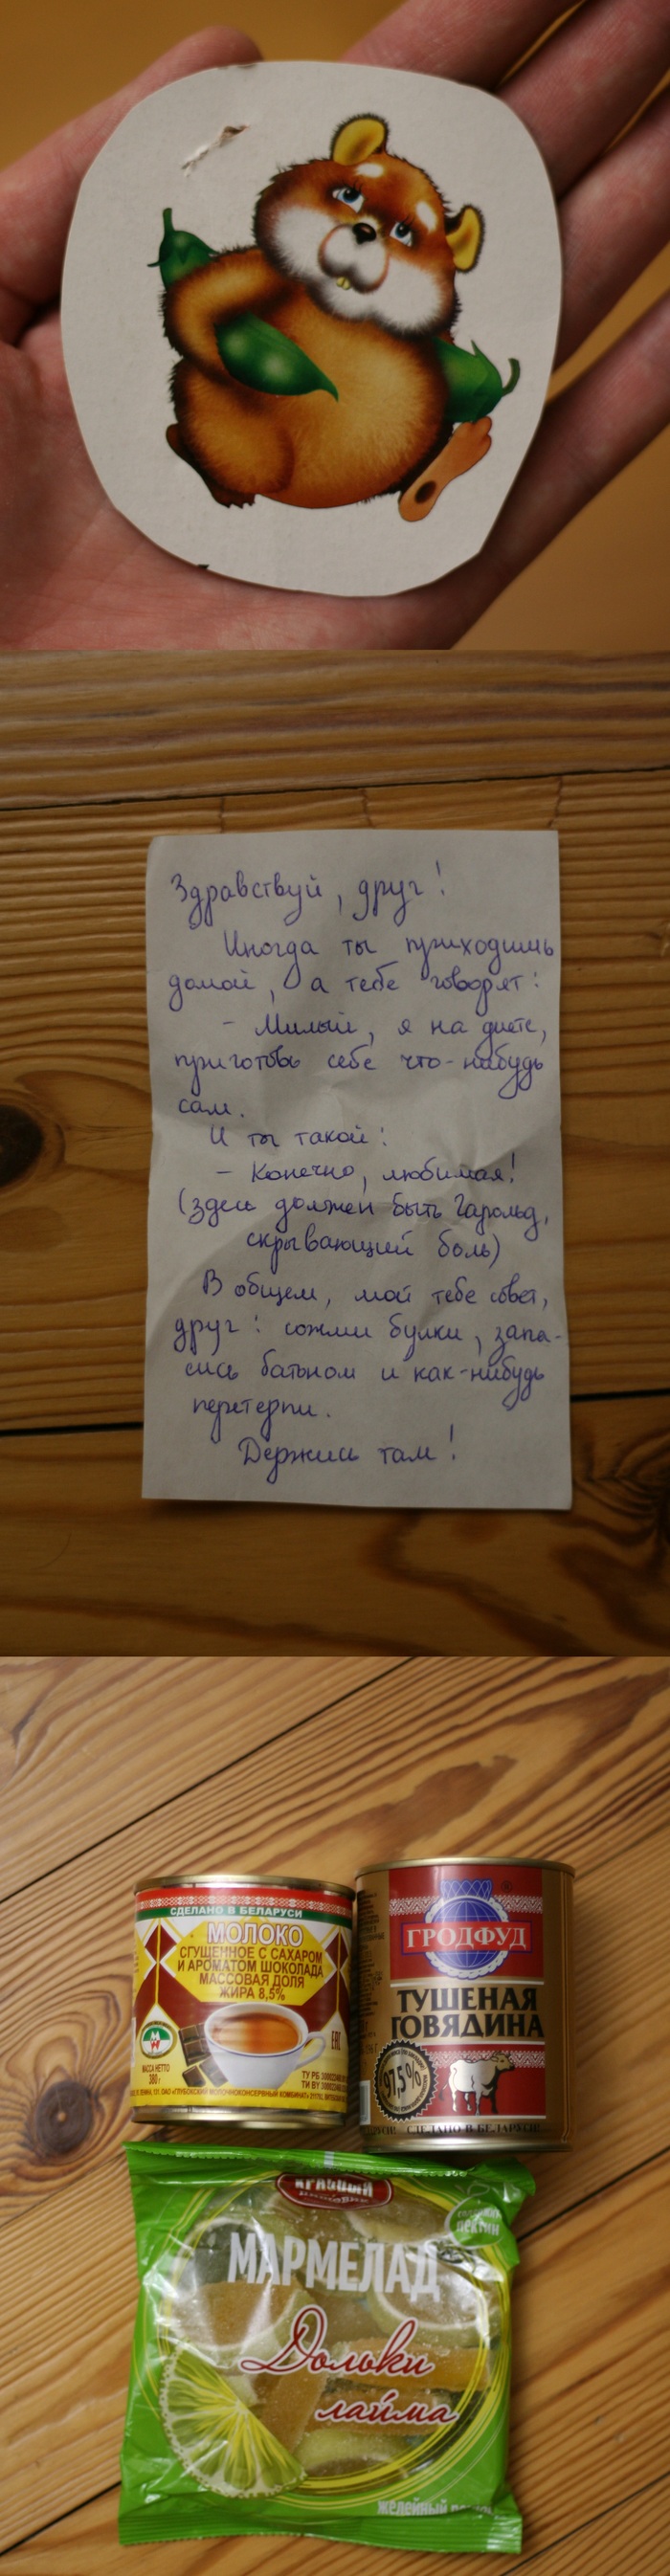 Здравствуй, друг!
Иногда ты приходишь
домой, а тебе говорят:
- Милый, я на диете,
приготовь себе что-нибудь
сам.
И ты такой:
- Конечно, любимая!
(здесь должен быть Гарольд,
скрывающий боль)
В общем, мой тебе совет,
друг: сожми булки, запа-
сись батоном и как-нибудь
перетерпи.
Держись там!
СДЕЛАНО В БЕЛАРУСИ
МОЛОКО
СГУЩЕННОЕ С САХАРОМ
И АРОМАТОМ ШОКОЛАДА
МАССОВАЯ ДОЛЯ
ЖИРА 8,5%
МАССА НЕТТО
380 г
ЕАС
ГРОДФУД
ТУШЕНАЯ
ГОВЯДИНА
97,5%
СДЕЛАНО В БЕЛАРУСИ
КРАСНЫЙ
ПИЩЕВИК
ПЕКТИН
МАРМЕЛАД
Дольки
лайма
желейный